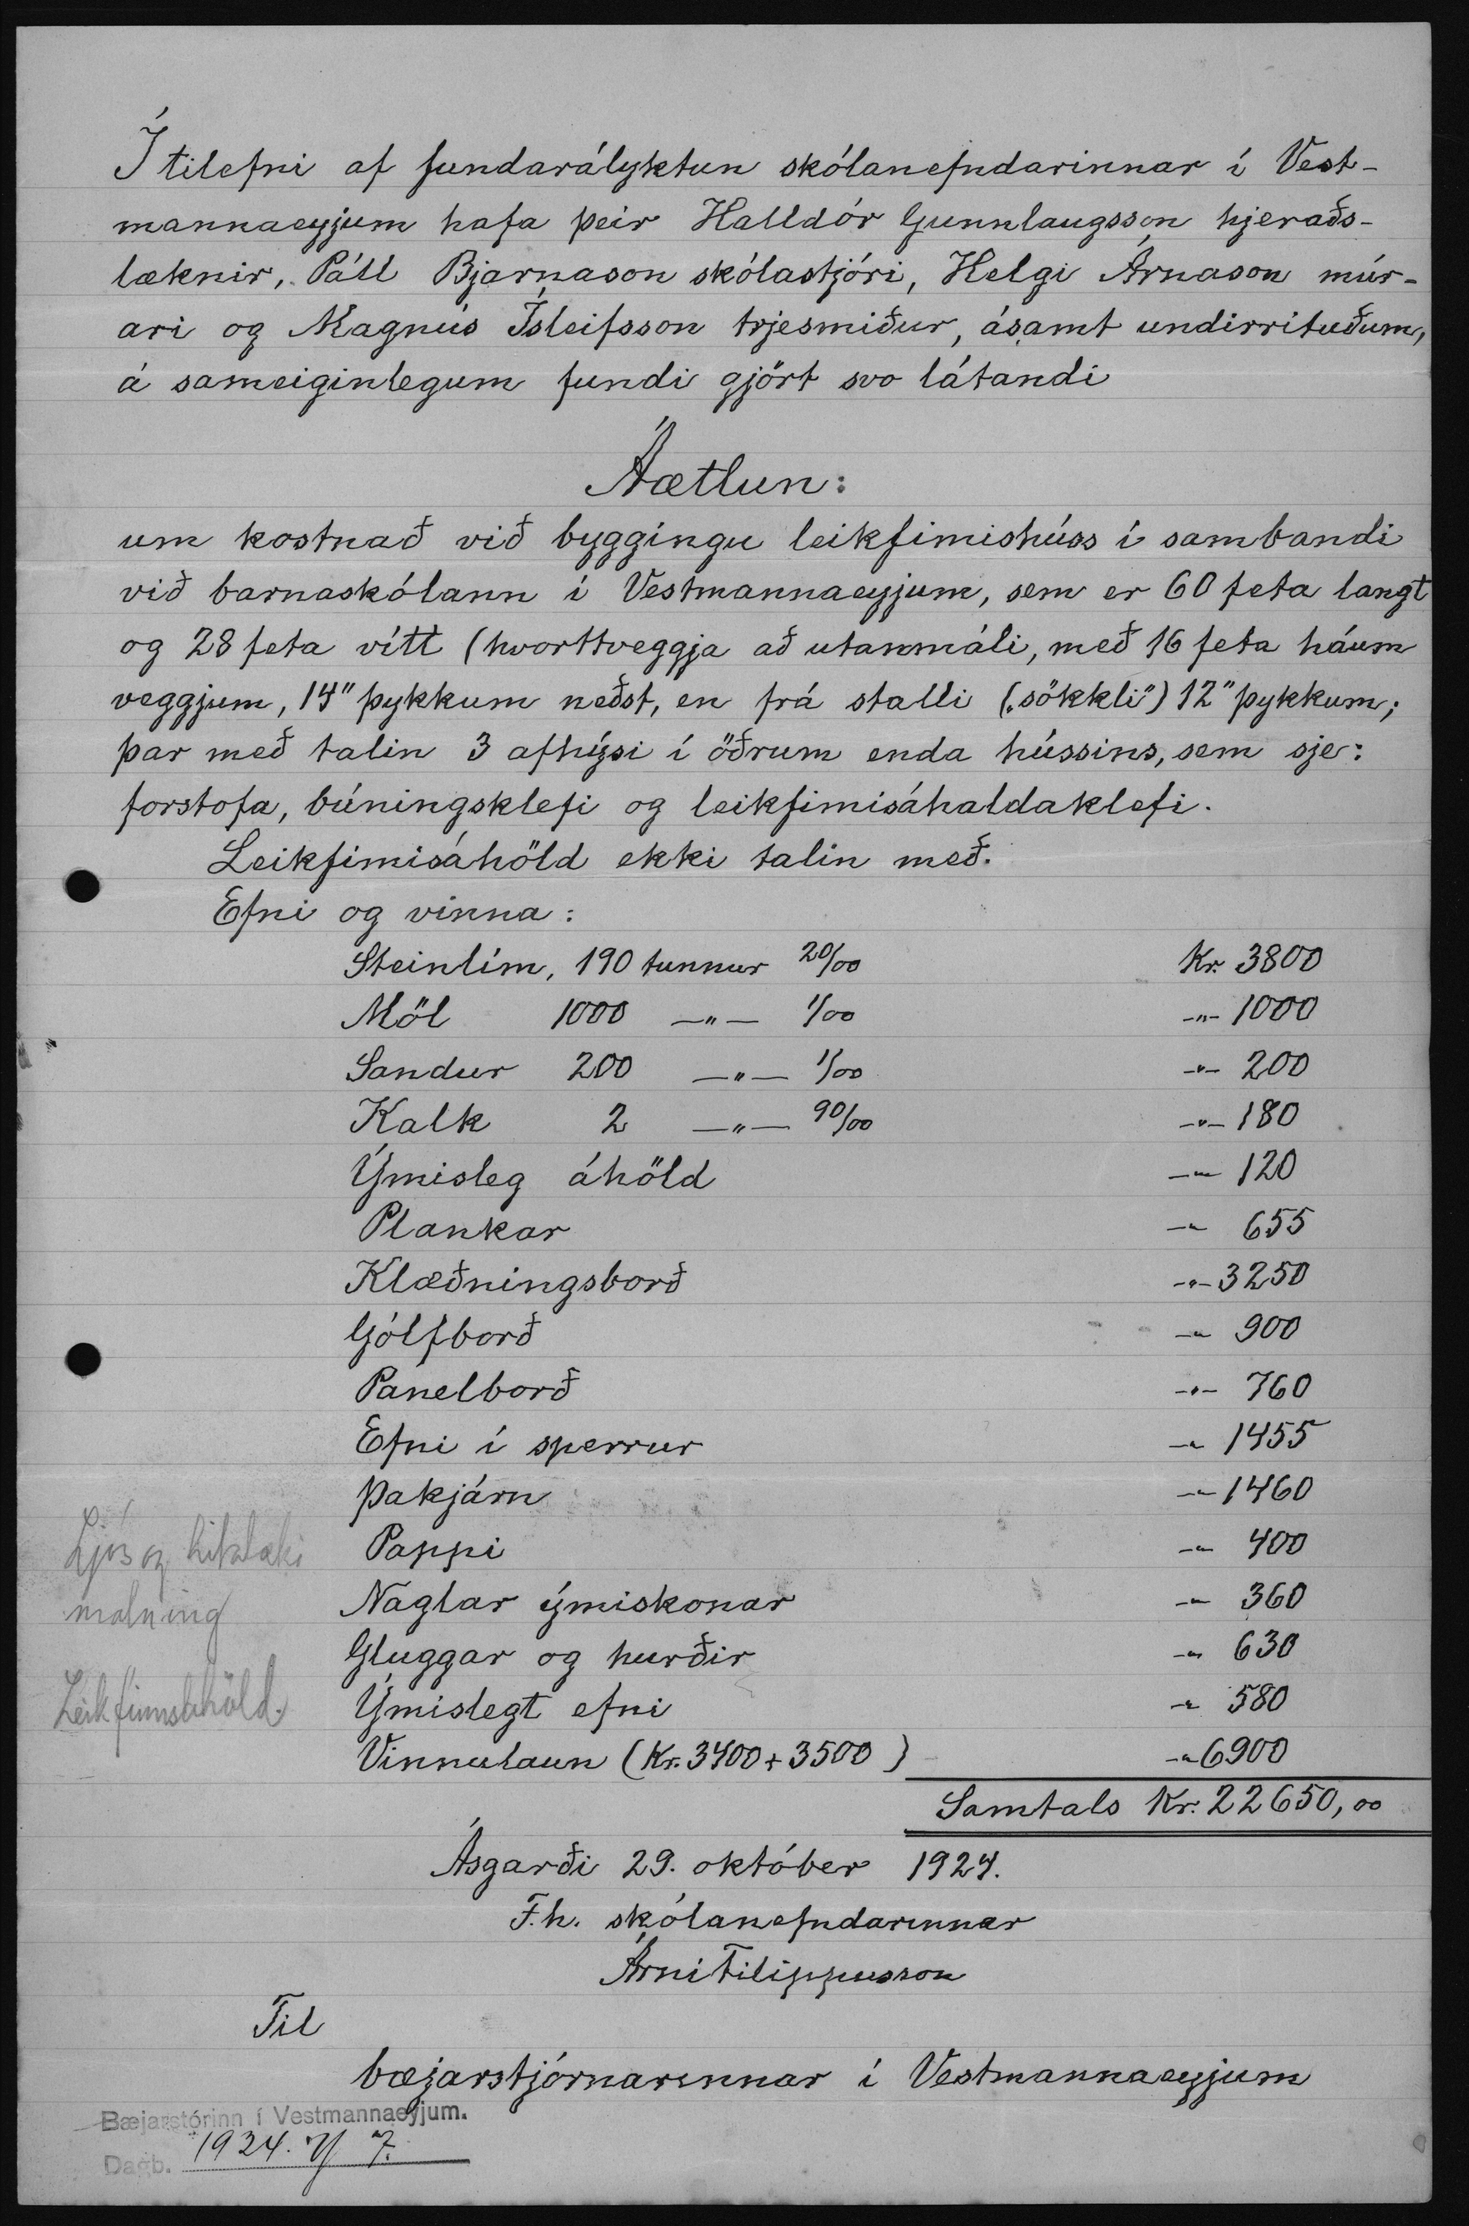 Í tilefni af fundarályktun skólanefndarinnar í Vest-
mannaeyjum hafa þeir Halldór Gunnlaugsson hjeraðs-
læknir, Páll Bjarnason skólastjóri, Helgi Árnason múr-
ari og Magnús Ísleifsson trjesmiður, ásamt undirrituðum,
á sameiginlegum fundi gjört svo látandi
Áætlun:
um kostnað við byggingu leikfimishúss í sambandi
við barnaskólann í Vestmannaeyjum, sem er 60 feta langt
og 28 feta vítt (hvorttveggja að utanmáli, með 16 feta háum
veggjum, 14" þykkum neðst, en frá stalli („sökkli") 12" þykkum;
þar með talin 3 afhýsi í öðrum enda hússins, sem sje:
forstofa, búningsklefi og leikfimisáhaldaklefi.
Leikfimisáhöld ekki talin með.
Efni og vinna:
Steinlím, 190 tunnur 20/00 Kr. 3800
Möl 1000 —"— 1/00 -"- 1000
Sandur 200 —"— 1/00 -"- 200
Kalk 2 —"— 90/00 -"- 180
Ýmisleg áhöld -"- 120
Plankar -"- 655
Klæðningsborð -"- 3250
Gólfborð -"- 900
Panelborð -"- 760
Efni í sperrur -"- 1455
Þakjárn -"- 1460
Ljós og hitatæki
Pappi -"- 400
malning
Naglar ýmiskonar -"- 360
Gluggar og hurðir -"- 630
Leikfimisáhöld.
Ýmislegt efni -"- 580
Vinnulaun (Kr. 3400 + 3500) -"- 6900
Samtals Kr. 22650,00
Ásgarði 29. október 1924.
F.h. skólanefndarinnar
Árni Filippusson
Til
bæjarstjórnarinnar í Vestmannaeyjum
Bæjarstórinn í Vestmannaeyjum.
Dagb. 1924. 7.